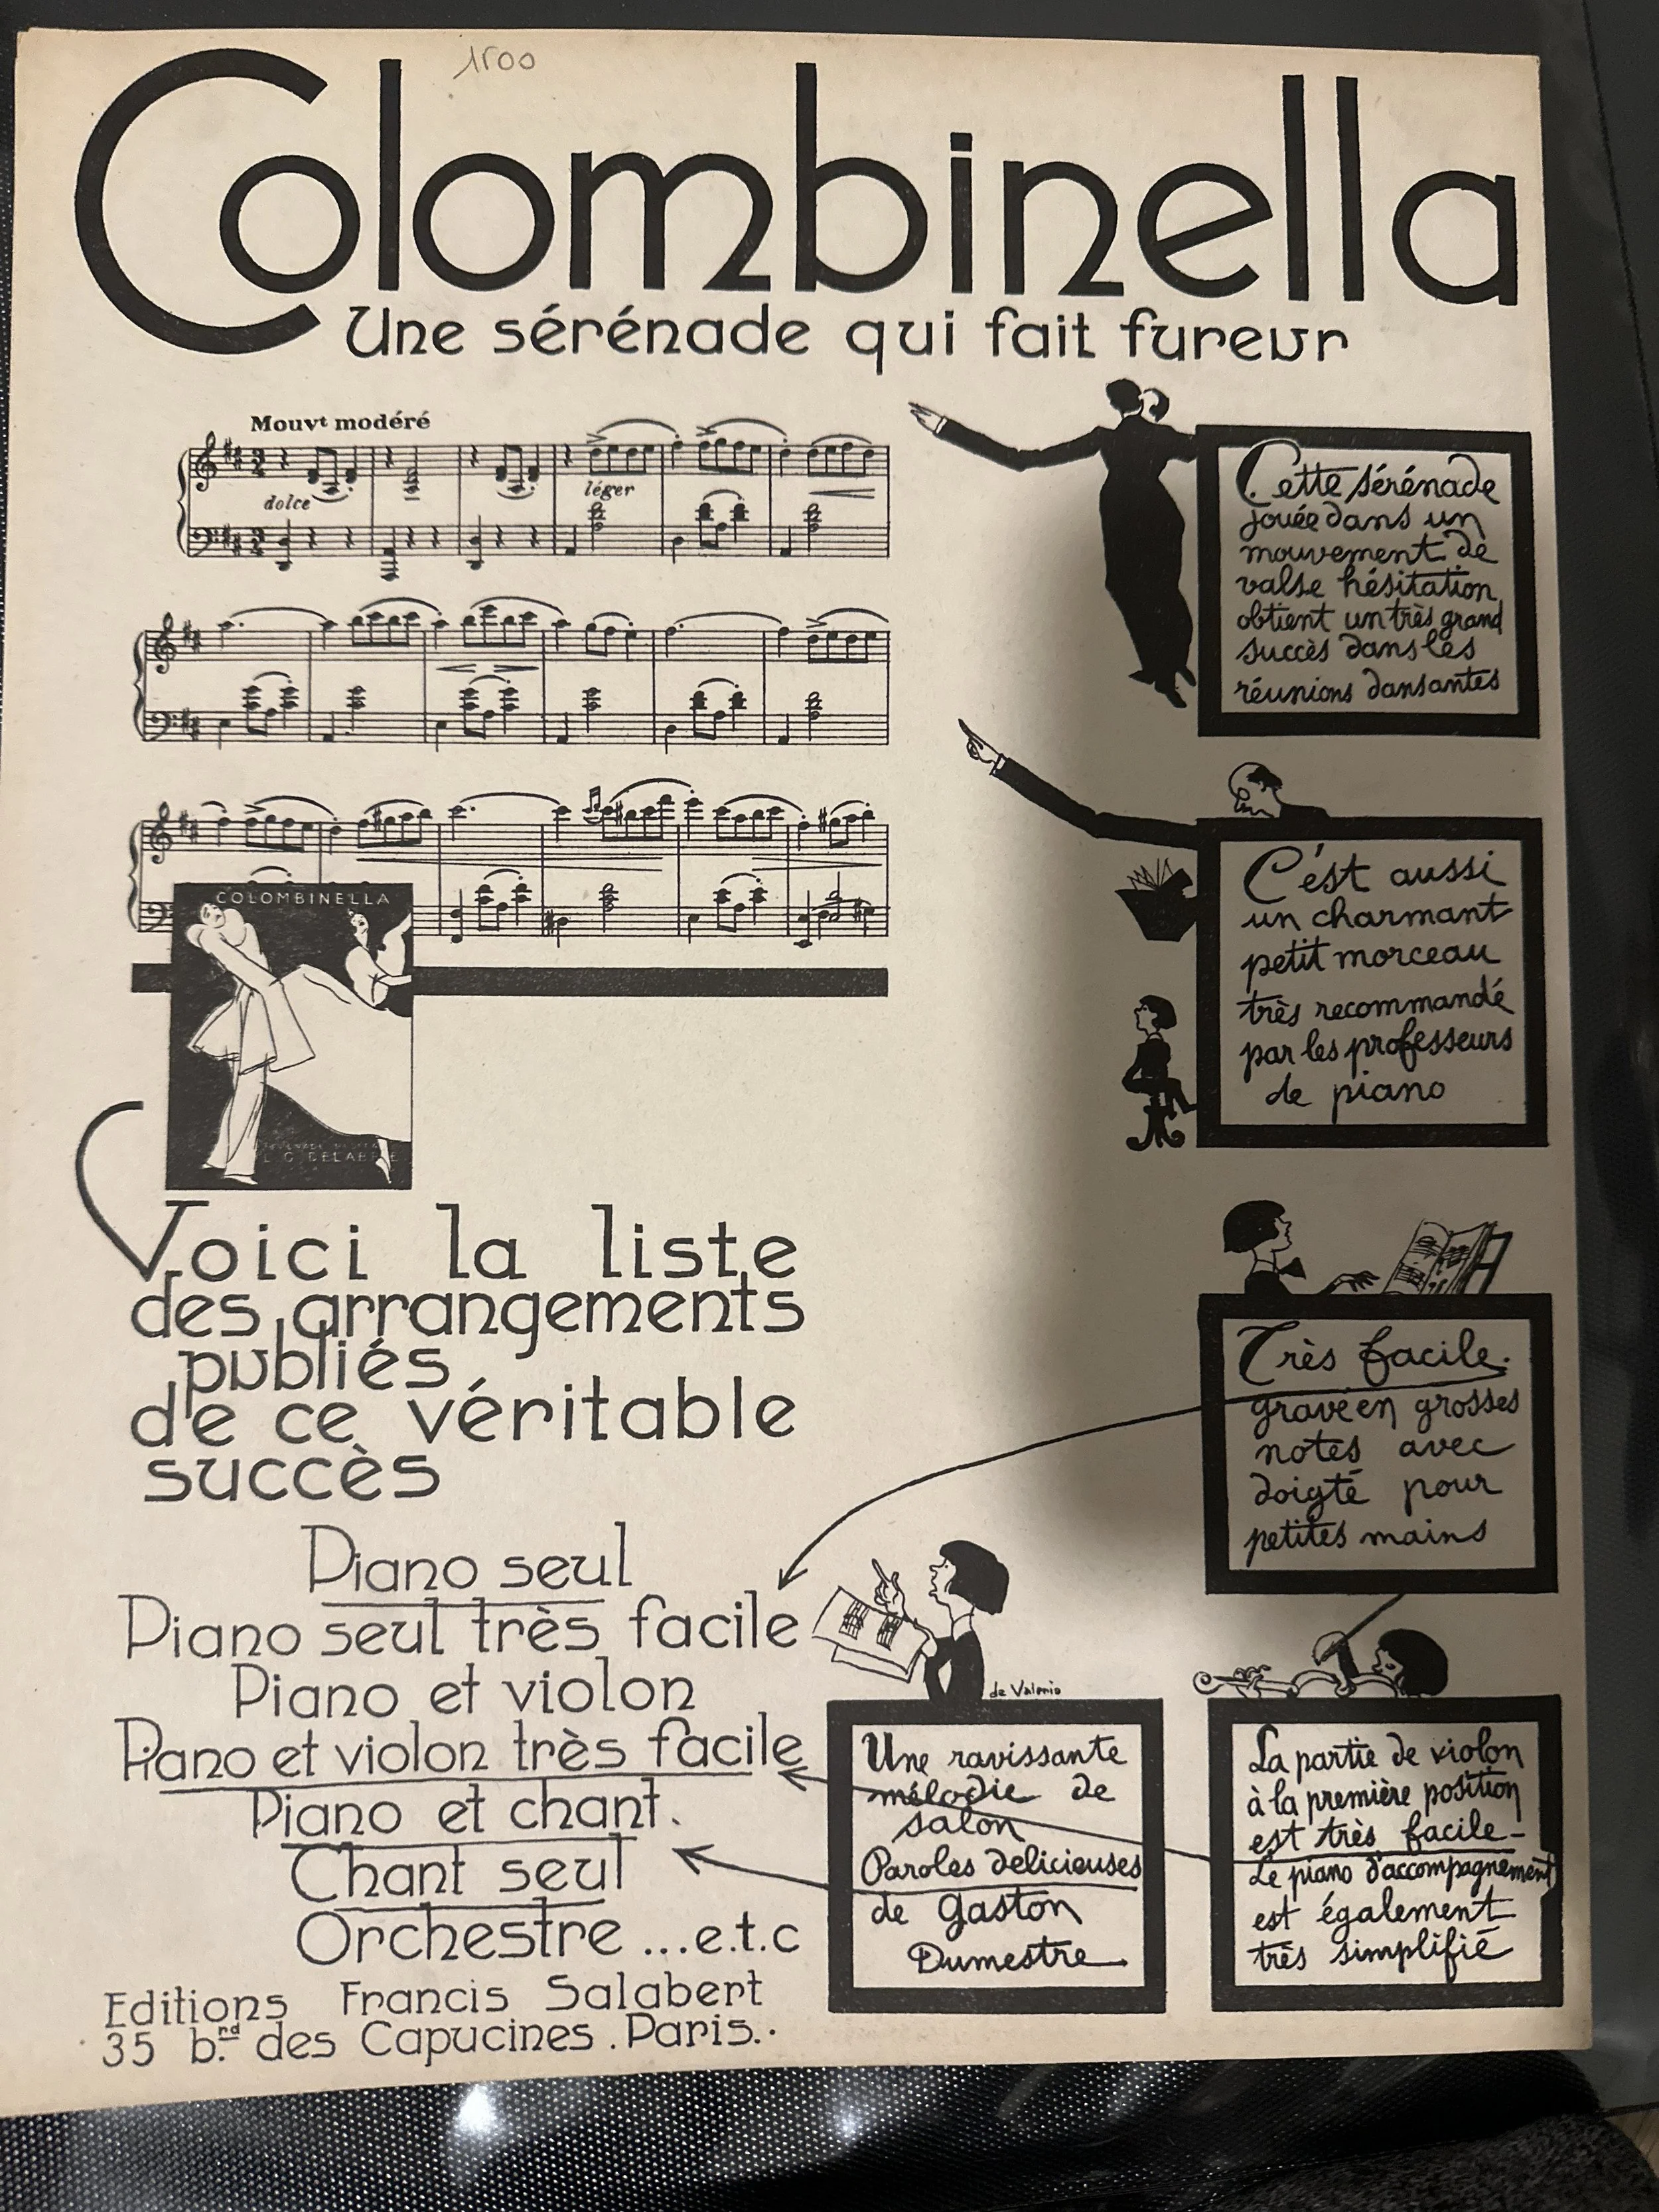 1500
Colombinella
Une sérénade qui fait fureur
Mouvt modéré
dolce
léger
Cette sérénade
jouée dans un
mouvement de
valse hésitation
obtient un très grand
succès dans les
réunions dansantes
C'est aussi
un charmant
petit morceau
très recommandé
par les professeurs
de piano
COLOMBINELLA
Voici la liste
des arrangements
publiés
de ce véritable
succès
Très facile.
gravé en grosses
notes avec
doigté pour
petites mains
Piano seul
Piano seul très facile
Piano et violon
Piano et violon très facile
Piano et chant.
Chant seul
Orchestre ...e.t.c
de Valerio
Une ravissante
mélodie de
salon
Paroles delicieuses
de Gaston
Dumestre
La partie de violon
à la première position
est très facile_
Le piano d'accompagnement
est également
très simplifié
Editions Francis Salabert
35 b.rd des Capucines . Paris..